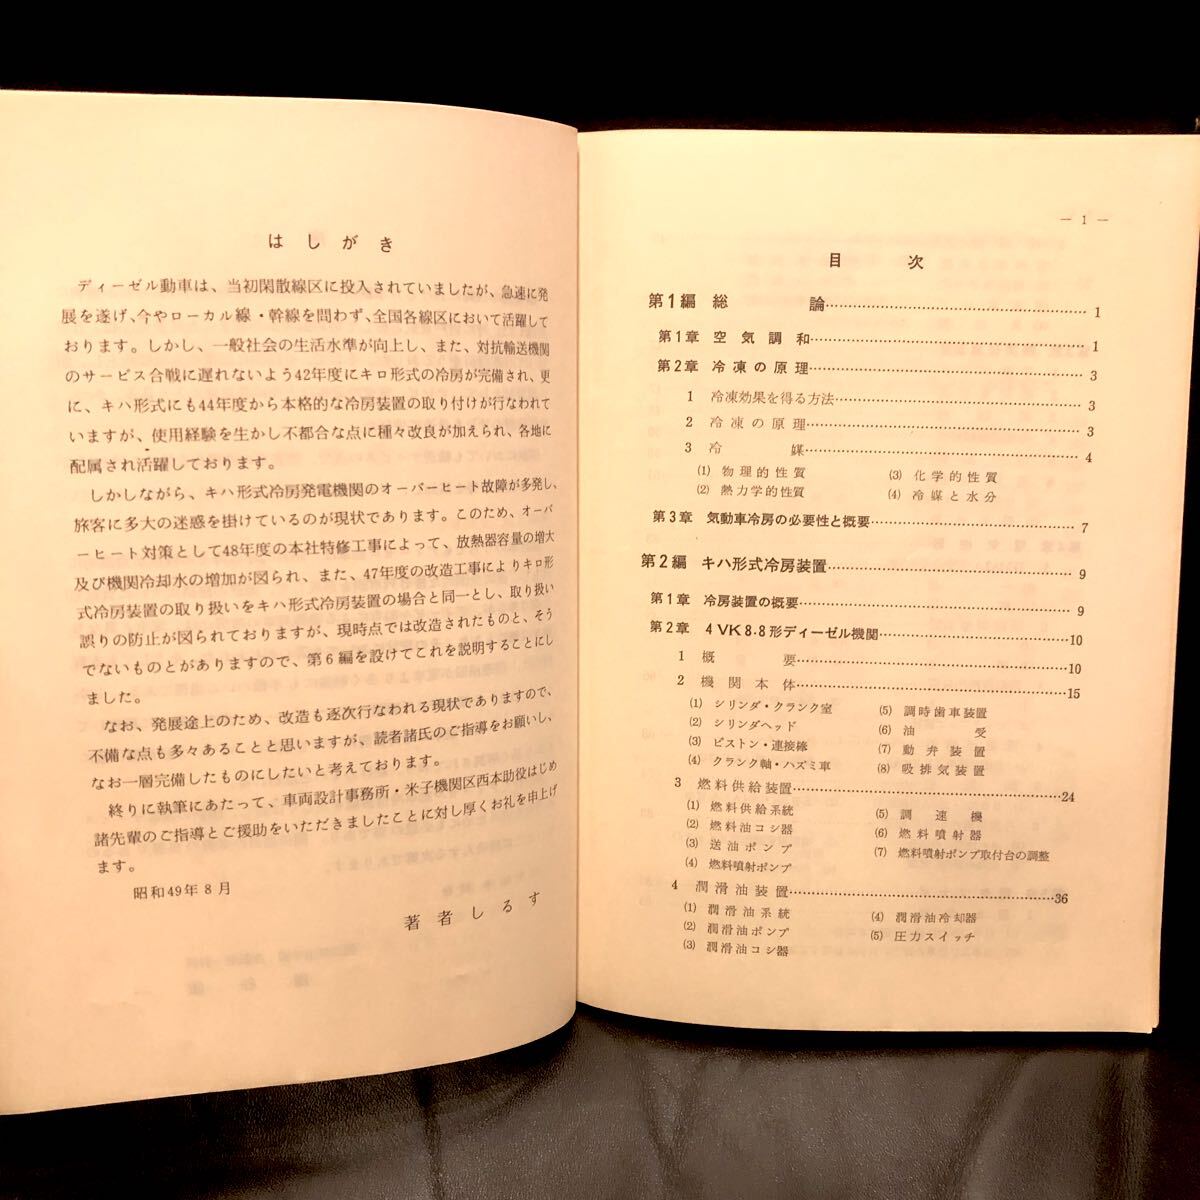 はしがき
ディーゼル動車は、当初閑散線区に投入されていましたが、急速に発
展を遂げ、今やローカル線・幹線を問わず、全国各線区において活躍して
おります。しかし、一般社会の生活水準が向上し、また、対抗輸送機関
のサービス合戦に遅れないよう42年度にキロ形式の冷房が完備され、更
に、キハ形式にも44年度から本格的な冷房装置の取り付けが行なわれて
いますが、使用経験を生かし不都合な点に種々改良が加えられ、各地に
配属され活躍しております。
しかしながら、キハ形式冷房発電機関のオーバーヒート故障が多発し、
旅客に多大の迷惑を掛けているのが現状であります。このため、オーバ
ーヒート対策として48年度の本社特修工事によって、放熱器容量の増大
及び機関冷却水の増加が図られ、また、47年度の改造工事によりキロ形
式冷房装置の取り扱いをキハ形式冷房装置の場合と同一とし、取り扱い
誤りの防止が図られておりますが、現時点では改造されたものと、そう
でないものとがありますので、第6編を設けてこれを説明することにし
ました。
なお、発展途上のため、改造も逐次行なわれる現状でありますので、
不備な点も多々あることと思いますが、読者諸氏のご指導をお願いし、
なお一層完備したものにしたいと考えております。
終りに執筆にあたって、車両設計事務所・米子機関区西本助役はじめ
諸先輩のご指導とご援助をいただきましたことに対し厚くお礼を申上げ
ます。
昭和49年8月
著者しるす
— 1 —
目次
第1編 総論……1
第1章 空気調和……1
第2章 冷凍の原理……3
1 冷凍効果を得る方法……3
2 冷凍の原理……3
3 冷媒……4
(1) 物理的性質 (3) 化学的性質
(2) 熱力学的性質 (4) 冷媒と水分
第3章 気動車冷房の必要性と概要……7
第2編 キハ形式冷房装置……9
第1章 冷房装置の概要……9
第2章 4VK8.8形ディーゼル機関……10
1 概要……10
2 機関本体……15
(1) シリンダ・クランク室 (5) 調時歯車装置
(2) シリンダヘッド (6) 油受
(3) ピストン・連接棒 (7) 動弁装置
(4) クランク軸・ハズミ車 (8) 吸排気装置
3 燃料供給装置……24
(1) 燃料供給系統 (5) 調速機
(2) 燃料油コシ器 (6) 燃料噴射器
(3) 送油ポンプ (7) 燃料噴射ポンプ取付台の調整
(4) 燃料噴射ポンプ
4 潤滑油装置……36
(1) 潤滑油系統 (4) 潤滑油冷却器
(2) 潤滑油ポンプ (5) 圧力スイッチ
(3) 潤滑油コシ器